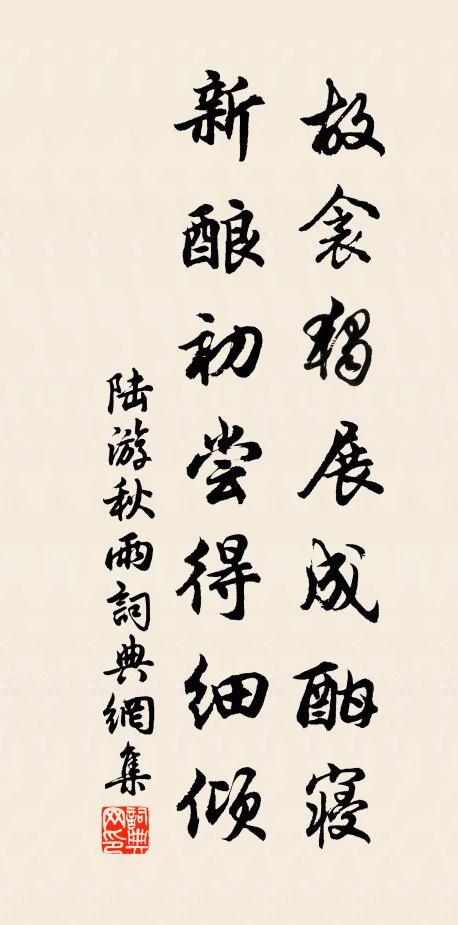 故衾独展成酣寝
新酿初尝得细倾
陆游秋雨詞典網集
詞典网印